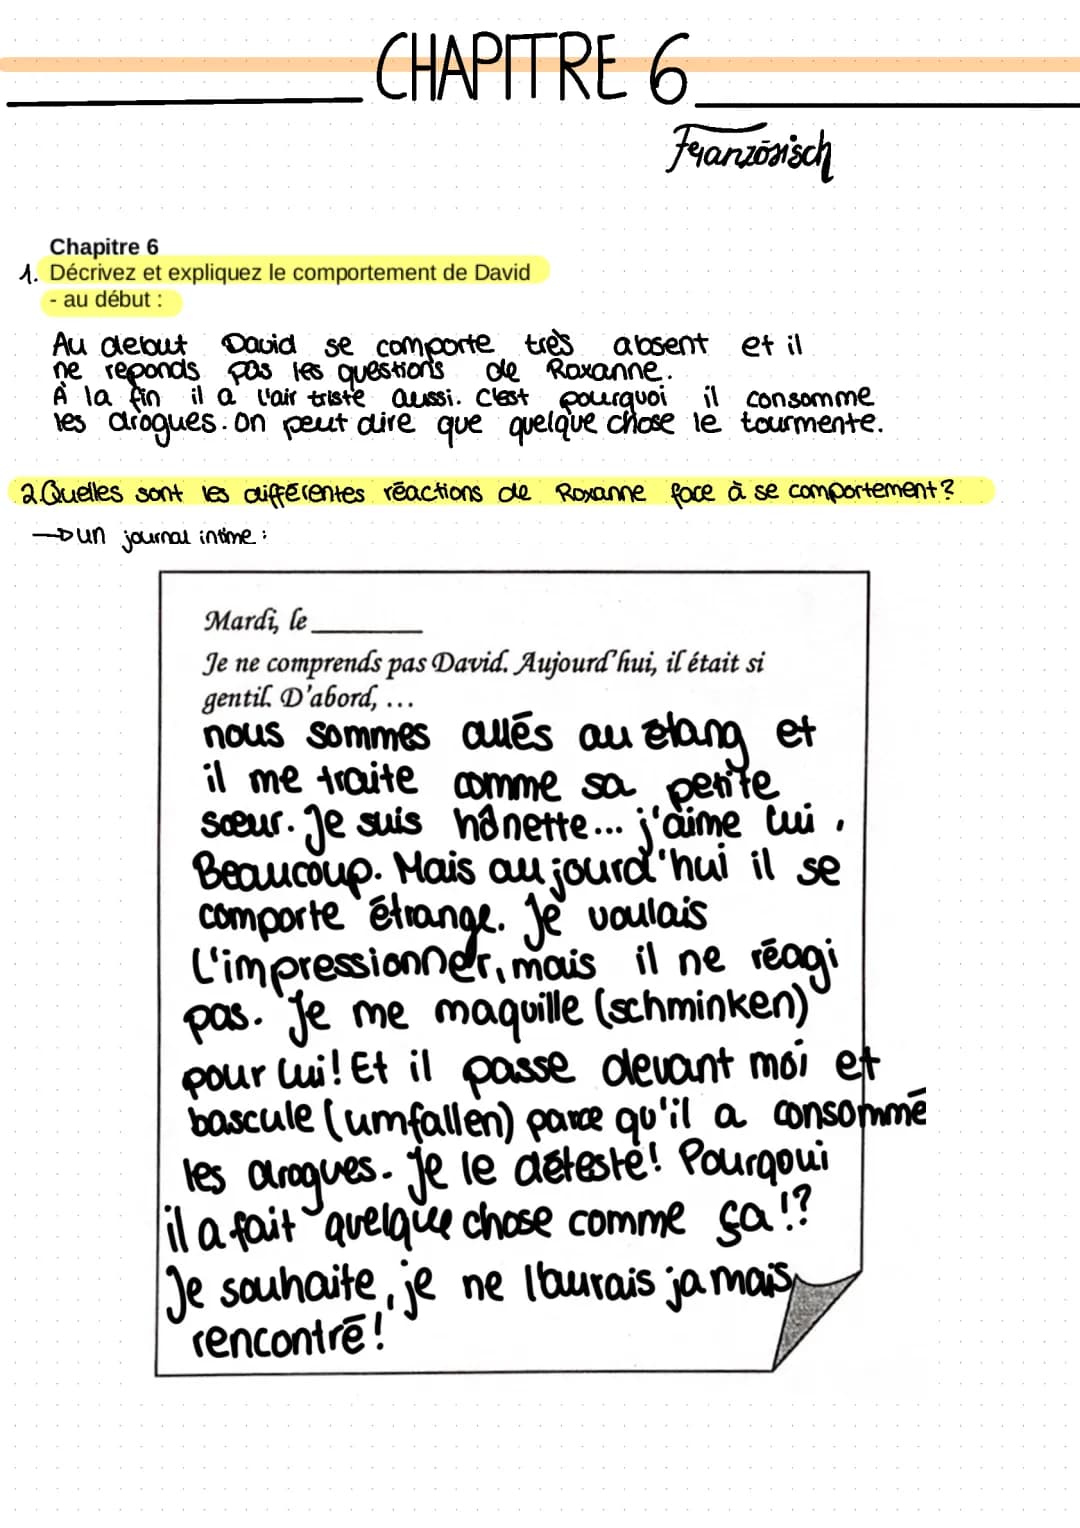 CHAPITRE 6
Französisch
Chapitre 6
1. Décrivez et expliquez le comportement de David
- au début :
Au debut David se comporte très absent et il
ne reponds pas les questions de Roxanne.
À la fin il a l'air triste aussi. C'est pourquoi il consomme
les drogues. On peut dire que quelque chose le tourmente.
2. Quelles sont les différentes réactions de Roxanne face à se comportement?
→ un journal intime :
Mardi, le ________
Je ne comprends pas David. Aujourd'hui, il était si
gentil. D'abord, ...
nous sommes allés au étang et
il me traite comme sa petite
sœur. Je suis hônette... j'aime lui.
Beaucoup. Mais aujourd'hui il se
comporte étrange. Je voulais
l'impressionner, mais il ne réagi
pas. Je me maquille (schminken)
pour lui! Et il passe devant moi et
bascule (umfallen) parce qu'il a consommé
les drogues. Je le déteste! Pourqoui
il a fait quelque chose comme ça!?
Je souhaite, je ne l'aurais jamais
rencontré!